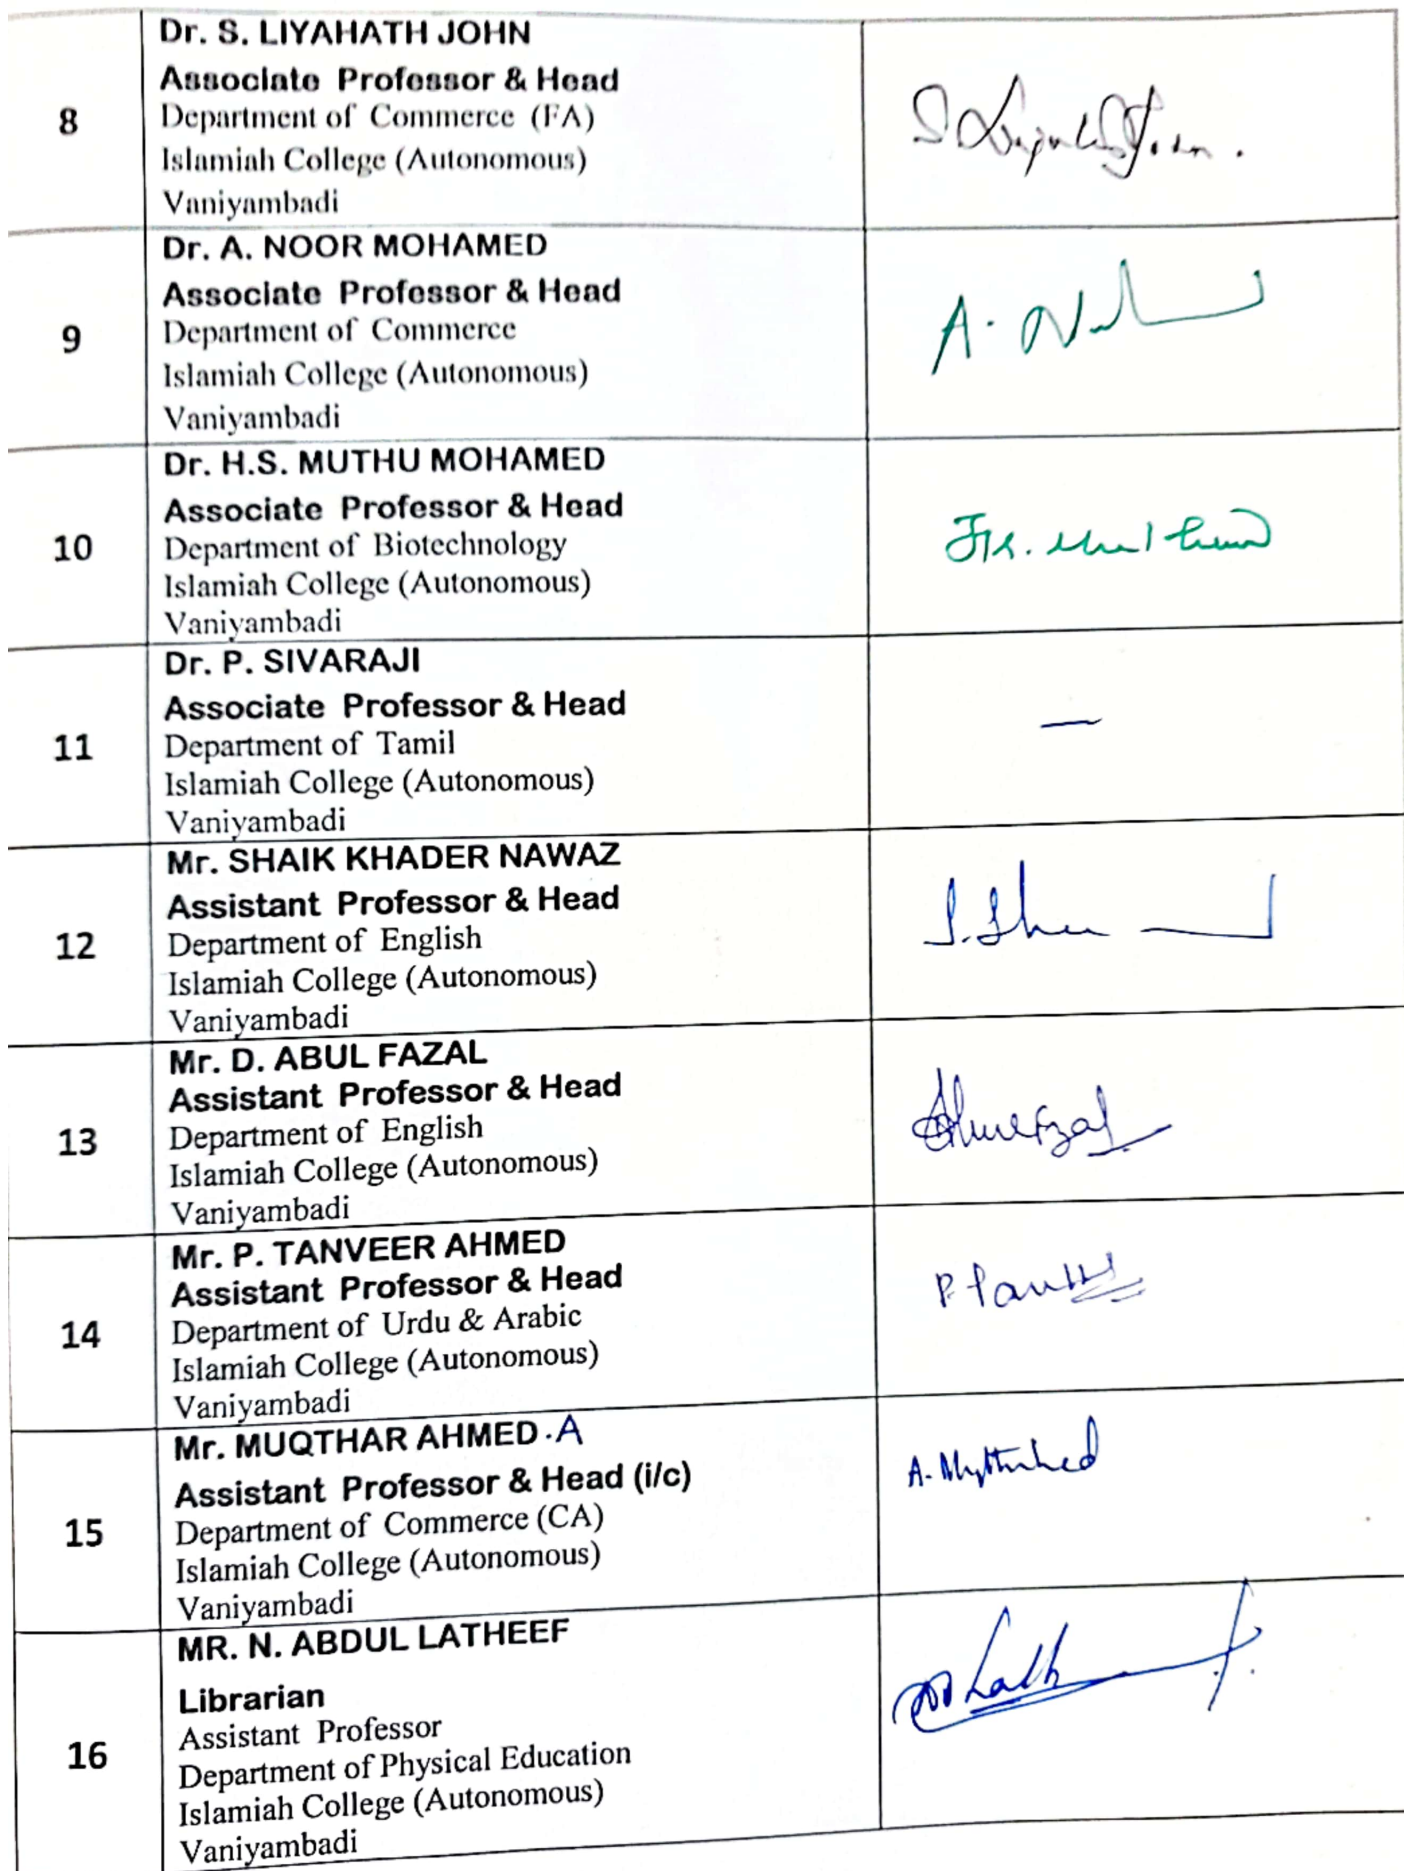 8
Dr. S. LIYAHATH JOHN
Associate Professor & Head
Department of Commerce (FA)
Islamiah College (Autonomous)
Vaniyambadi
9
Dr. A. NOOR MOHAMED
Associate Professor & Head
Department of Commerce
Islamiah College (Autonomous)
Vaniyambadi
A.
10
Dr. H.S. MUTHU MOHAMED
Associate Professor & Head
Department of Biotechnology
Islamiah College (Autonomous)
Vaniyambadi
11
Dr. P. SIVARAJI
Associate Professor & Head
Department of Tamil
Islamiah College (Autonomous)
Vaniyambadi
—
12
Mr. SHAIK KHADER NAWAZ
Assistant Professor & Head
Department of English
Islamiah College (Autonomous)
Vaniyambadi
13
Mr. D. ABUL FAZAL
Assistant Professor & Head
Department of English
Islamiah College (Autonomous)
Vaniyambadi
14
Mr. P. TANVEER AHMED
Assistant Professor & Head
Department of Urdu & Arabic
Islamiah College (Autonomous)
Vaniyambadi
P.
15
Mr. MUQTHAR AHMED .A
Assistant Professor & Head (i/c)
Department of Commerce (CA)
Islamiah College (Autonomous)
Vaniyambadi
A.
16
MR. N. ABDUL LATHEEF
Librarian
Assistant Professor
Department of Physical Education
Islamiah College (Autonomous)
Vaniyambadi